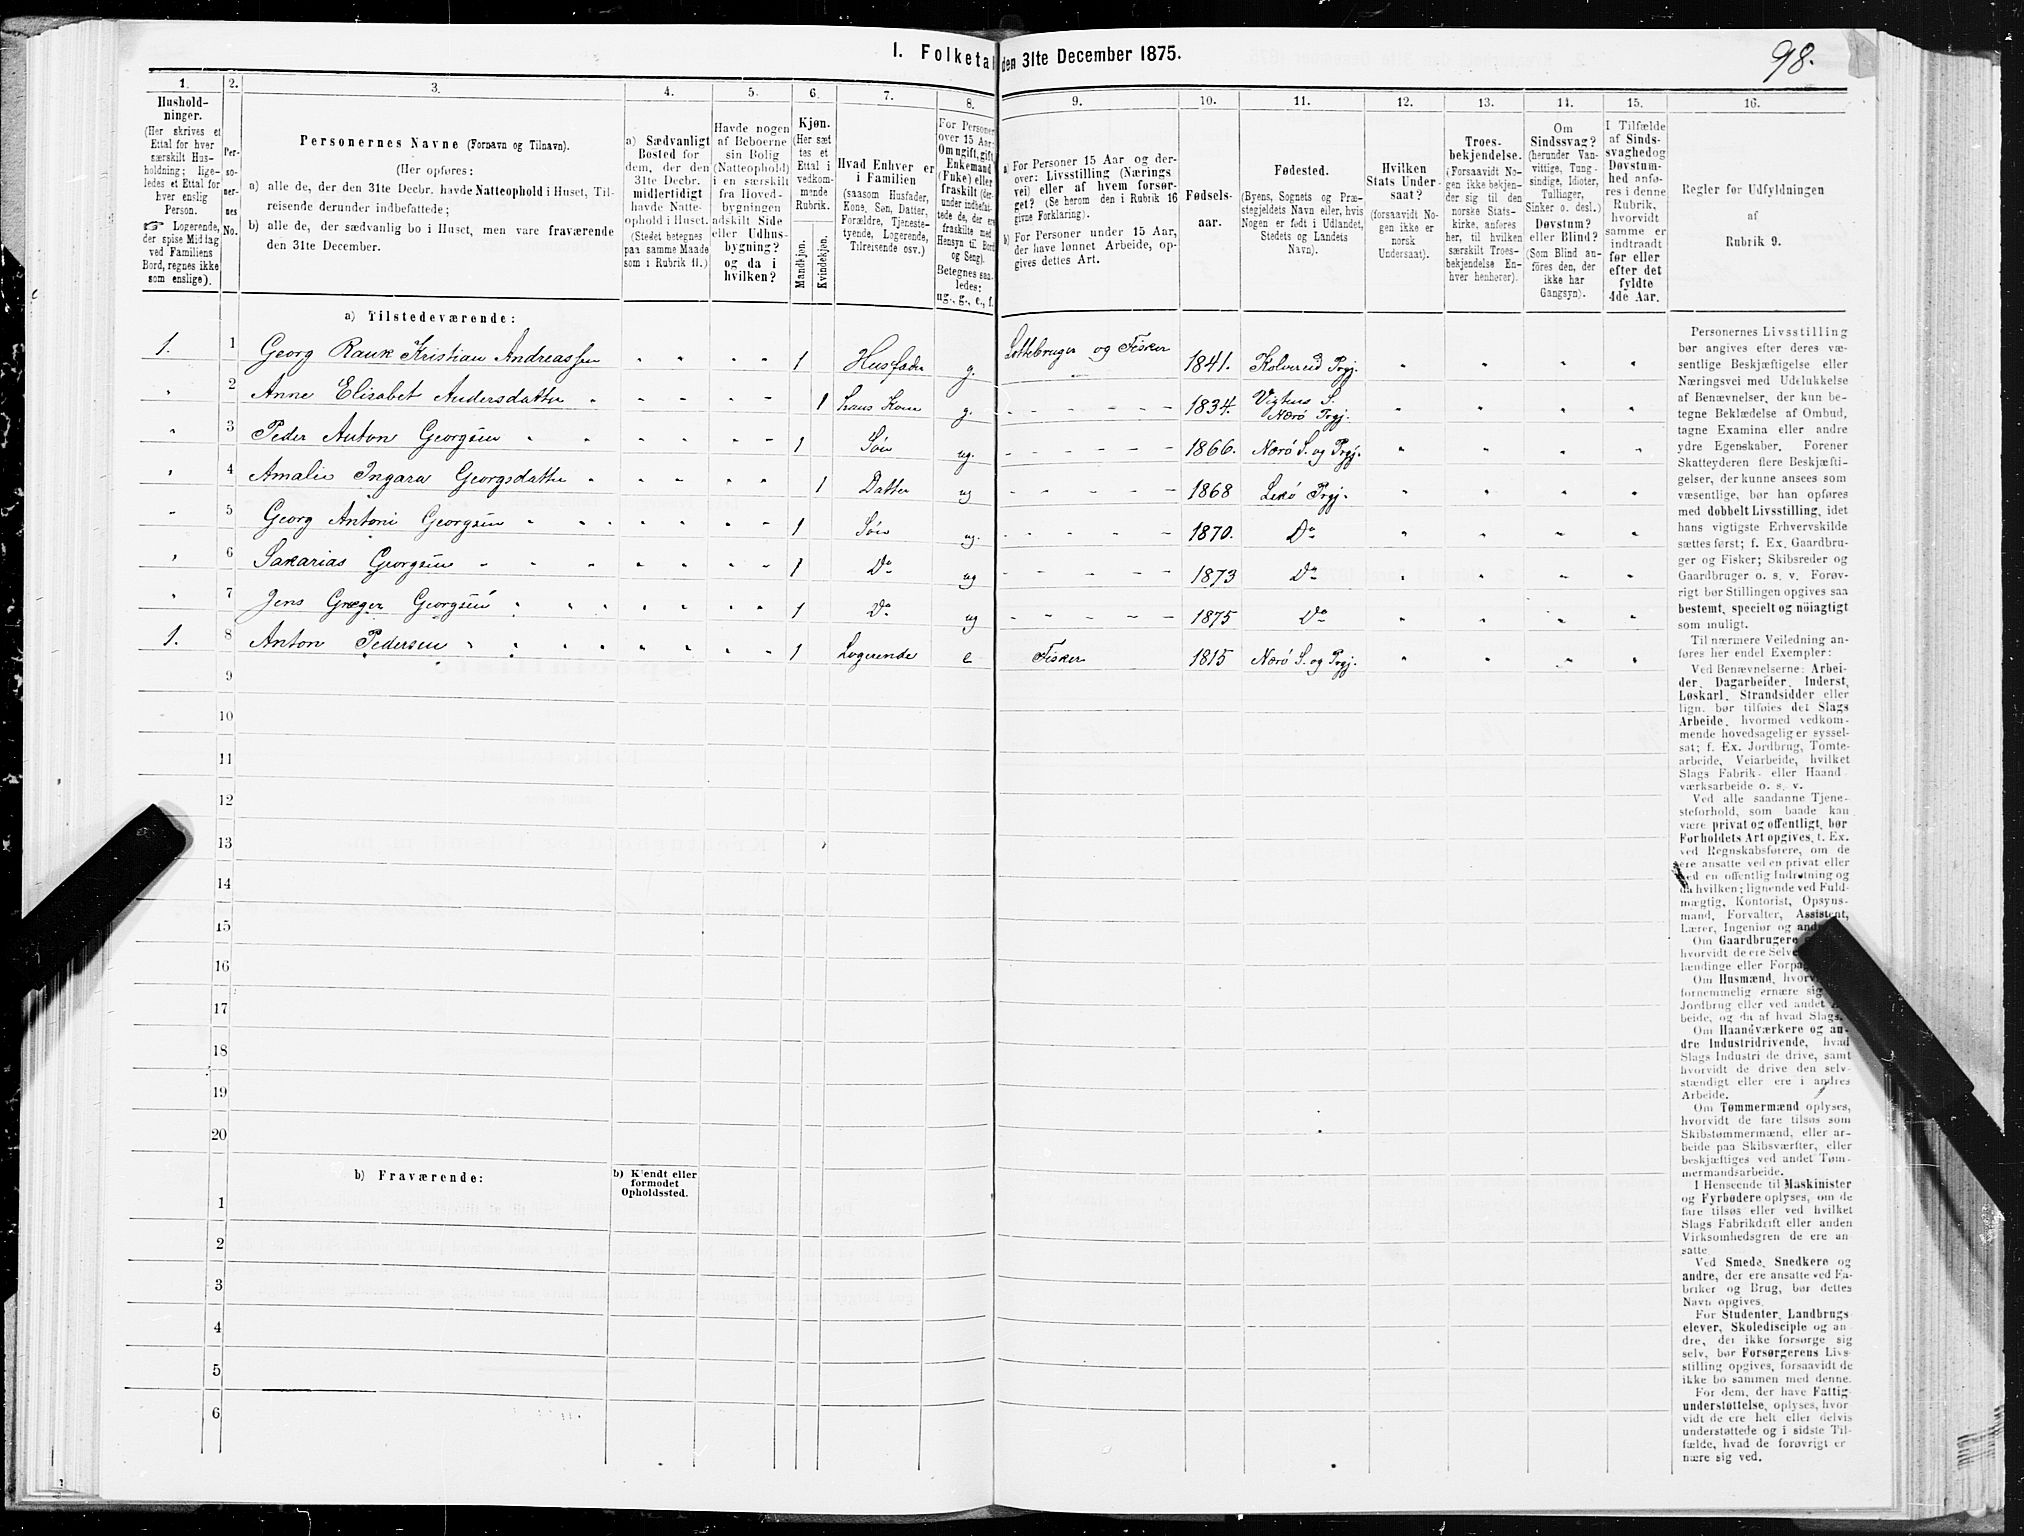 98.
I. Folketal den 31te December 1875.
1. 2. 3. 4. 5. 6. 7. 8. 9. 10. 11. 12. 13. 14. 15. 16.
Hushold-
ninger.
(Her skrives et
Ettal for hver
særskilt Hus-
holdning; lige-
ledes et Ettal for
hver enslig
Person.
☞ Logerende,
der spise Middag
ved Familiens
Bord, regnes ikke
som enslige).
Per-
soner-
nes
No.
Personernes Navne (Fornavn og Tilnavn).
(Her opføres:
a) alle de, der den 31te Decbr. havde Natteophold i Huset, Til-
reisende derunder indbefattede;
b) alle de, der sædvanlig bo i Huset, men vare fraværende
den 31te December.
a) Sædvanligt
Bosted for
dem, der den
31te Decbr.
midlertidigt
havde Natte-
ophold i Huset.
(Stedet betegnes
paa samme Maade
som i Rubrik 11.)
Havde nogen
af Beboerne
sin Bolig
(Natteophold)
i en særskilt
fra Hoved-
bygningen
adskilt Side
eller Udhus-
bygning?
og da i
hvilken?
Kjøn.
(Her sæt
tes et
Ettal i
vedkom-
mende
Rubrik.
Mandkjøn.
Kvindekjøn.
Hvad Enhver er
i Familien
(saasom Husfader,
Kone, Søn, Datter,
Forældre, Tjeneste-
tyende, Logerende,
Tilreisende osv.)
For Personer
over 15 Aar:
Om ugift, gift,
Enkemand
(Enke) eller
fraskilt (der-
under indbefat-
tede de, der ere
fraskilte med
Hensyn til Bord
og Seng).
Betegnes saa-
ledes:
ug., g., e., f.
a) For Personer 15 Aar og der-
over: Livsstilling (Nærings
vei) eller af hvem forsør-
get? (Se herom den i Rubrik 16
givne Forklaring).
b) For Personer under 15 Aar,
der have lønnet Arbeide, op-
gives dettes Art.
Fødsels-
aar.
Fødested.
(Byens, Sognets og Præ-
stegjeldets Navn eller, hvis
Nogen er født i Udlandet,
Stedets og Landets
Navn).
Hvilken
Stats Under-
saat?
(forsaavidt No-
gen ikke er
norsk
Undersaat).
Troes-
bekjendelse.
(Forsaavidt No-
gen ikke bekjen-
der sig til den
norske Stats-
kirke, anføres
her, til hvilken
særskilt Troes-
bekjendelse En-
hver henhører).
Om
Sindssvag?
(herunder Van-
vittige, Tung-
sindige, Idioter,
Tullinger,
Sinker o. desl.)
Døvstum?
eller Blind?
(Som Blind an-
føres den, der
ikke har
Gangsyn).
I Tilfælde
af Sinds-
svaghed og
Døvstum-
hed anfø-
res i denne
Rubrik,
hvorvidt
samme er
indtraadt
før eller
efter det
fyldte
4de Aar.
Regler før Udfyldningen
af
Rubrik 9.
a) Tilstedeværende:
1. 1 Georg Rauk Kristian Andreassen " " " " 1 Husfader g. Lottebruger og Fisker 1841. Kolvereid Prgj. " " " "
" 2 Anne Elisabet Andersdatter " " " " " 1 hans Kone g. - - - - - 1834. Vigtens S. Nærø Prgj. " " " "
" 3 Peder Anton Georgsen " " " " " " 1 Søn ug. - - - - - 1866. Nærø S. og Prgj. " " " "
" 4 Amalie Ingara Georgsdatter " " " " " 1 Datter ug - - - - - 1868 Lekø Prgj. " " " "
" 5 Georg Antoni Georgsen " " " " " " 1 Søn ug. - - - - - 1870. Do " " " "
" 6 Sakarias Georgsen " " " " " " " 1 Do ug - - - - 1873 Do " " " "
" 7 Jens Græger Georgsen " " " " " " " 1 Do ug - - - - - 1875 Do " " " "
1. 8 Anton Pedersen " " " " " " " 1 Logerende e Fisker 1815 Nærø S. og Prgj. " " " "
9
10
11
12
13
14
15
16
17
18
19
20
b) Fraværende:
b) Kjendt eller
formodet
Opholdssted.
1
2
3
4
5
6
Personernes Livsstilling
bør angives efter deres væ-
sentlige Beskjæftigelse eller
Næringsvei med Udelukkelse
af Benævnelser, der kun be-
tegne Beklædelse af Ombud,
tagne Examina eller andre
ydre Egenskaber. Forener
Skatteyderen flere Beskjæfti-
gelser, der kunne ansees som
væsentlige, bør han opføres
med dobbelt Livsstilling, idet
hans vigtigste Erhvervskilde
sættes først; f. Ex. Gaardbru-
ger og Fisker; Skibsreder og
Gaardbruger o. s. v. Forøv-
rigt bør Stillingen opgives saa
bestemt, specielt og nöiagtigt
som muligt.
Til nærmere Veiledning an-
føres her endel Exempler:
Ved Benævnelserne: Arbei-
der, Dagarbeider, Inderst,
Løskarl, Strandsidder eller
lign. bør tilføies det Slags
Arbeide, hvormed vedkom-
mende hovedsagelig er syssel-
sat; f. Ex. Jordbrug, Tomte-
arbeide, Veiarbeide, hvilket
Slags Fabrik- eller Haand-
værksarbeide o. s. v.
Ved alle saadanne Tjene-
steforhold, som baade kan
være privat og offentligt, bør
Forholdets Art opgives, t. Ex.
ved Regnskabsførere, om de
ere ansatte ved en privat eller
ved en offentlig Indretning og
da hvilken; lignende ved Fuld-
mægtig, Kontorist, Opsyns-
mand, Forvalter, Assistent,
Lærer, Ingeniør og
Om Gaardbrugere
hvorvidt de ere
lændinge eller
Om Husmænd,
fornemmelig ernære sig
Jordbrug eller ved andet
beide, og da af hvad Slags.
Om Haandværkere og an-
dre Industridrivende, hvad
Slags Industri de drive, samt
hvorvidt de drive den selv-
stændigt eller ere i andres
Arbeide.
Om Tømmermænd oplyses,
hvorvidt de fare tilsøs som
Skibstømmermænd, eller ar-
beide paa Skibsværfter, eller
beskjæftiges ved andet Tøm-
mermandsarbeide.
I Henseende til Maskinister
og Fyrbødere oplyses, om de
fare tilsøs eller ved hvilket
Slags Fabrikdrift eller anden
Virksomhedsgren de ere an-
satte
Ved Smede, Snedkere og
andre, der ere ansatte ved Fa-
briker og Brug, bør dettes
Navn opgives.
For Studenter, Landbrugs-
elever, Skoledisciple og an-
dre, der ikke forsørge sig
selv, bør Forsørgerens Livs-
stilling opgives, forsaavidt de
ikke bo sammen med denne.
For dem, der have Fattig-
understøttelse, oplyses, hvor-
vidt de ere helt eller delvis
understøttede og i sidste Til-
fælde, hvad de forøvrigt er-
nære sig ved.